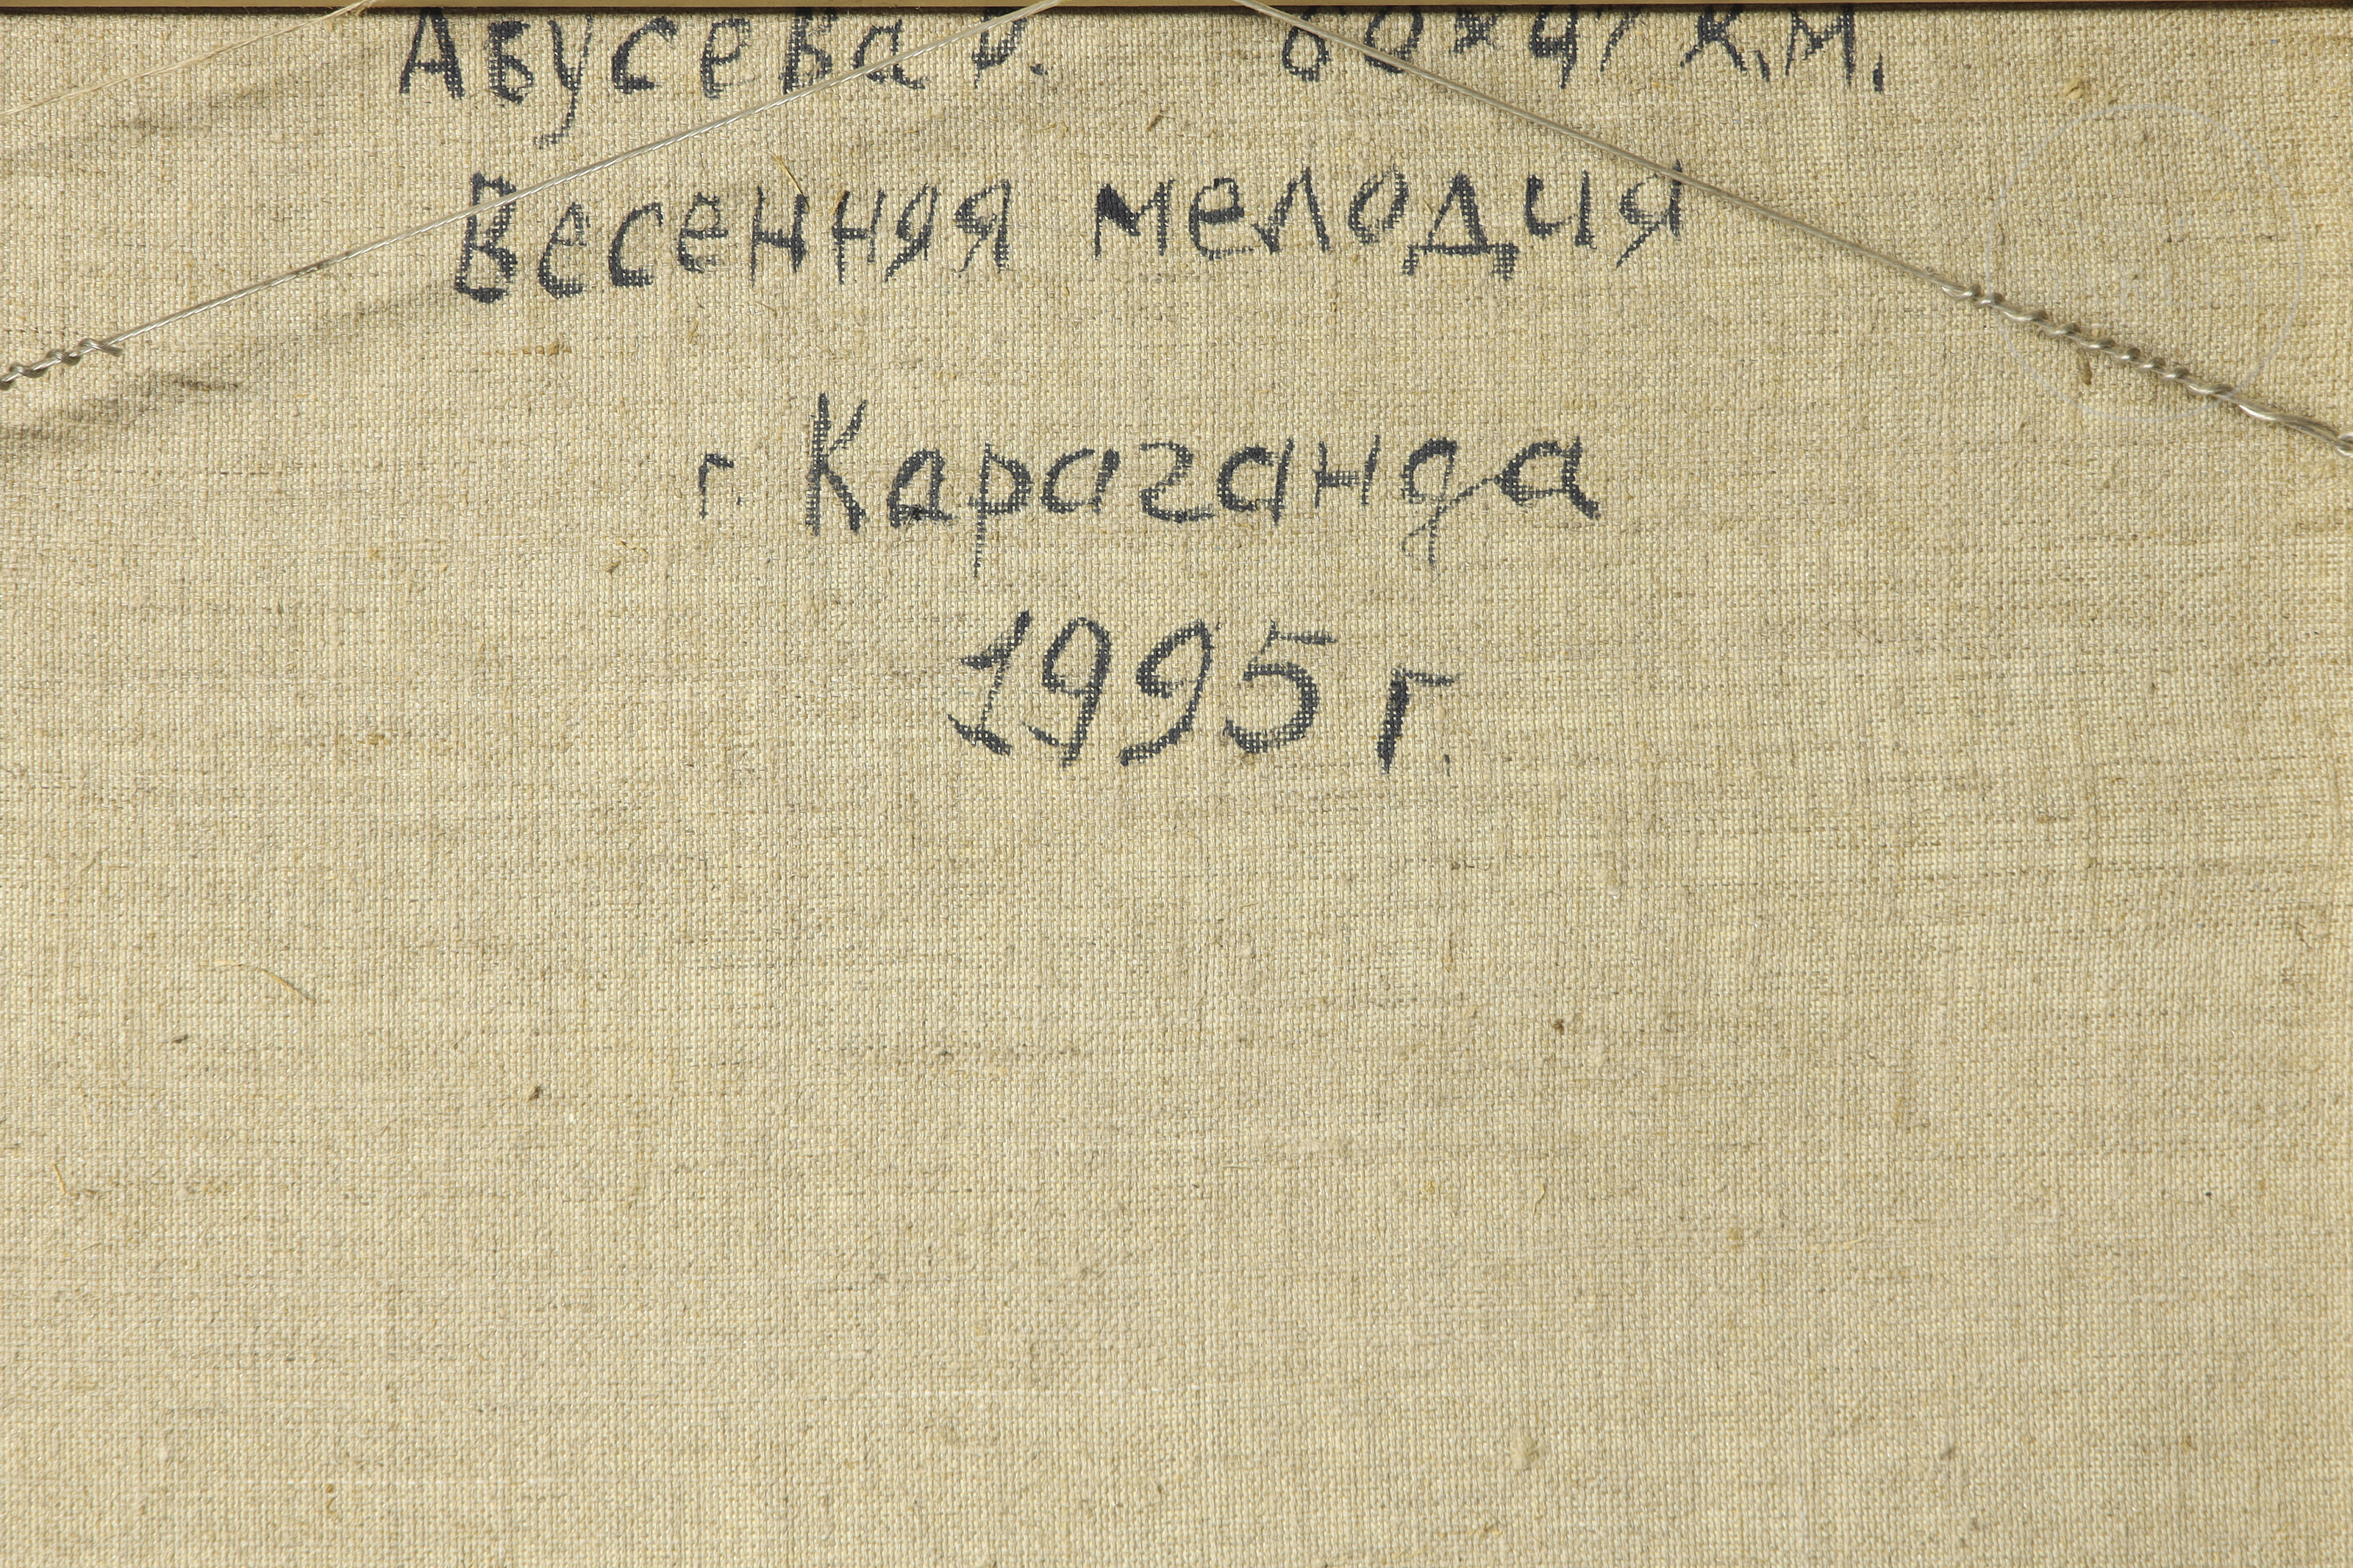 Абусева 60х47 х.м.
Весенняя мелодия
г. Караганда
1995 г.